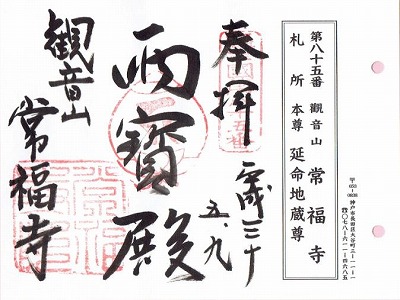 第八十五番 観音山 常福寺
札所 本尊 延命地蔵尊
〒653-0836 神戸市長田区大谷町三-一一-一
☎〇七八-六一一-四六八五
奉拝
平成三十
五、九
両寳殿
観音山
常福寺